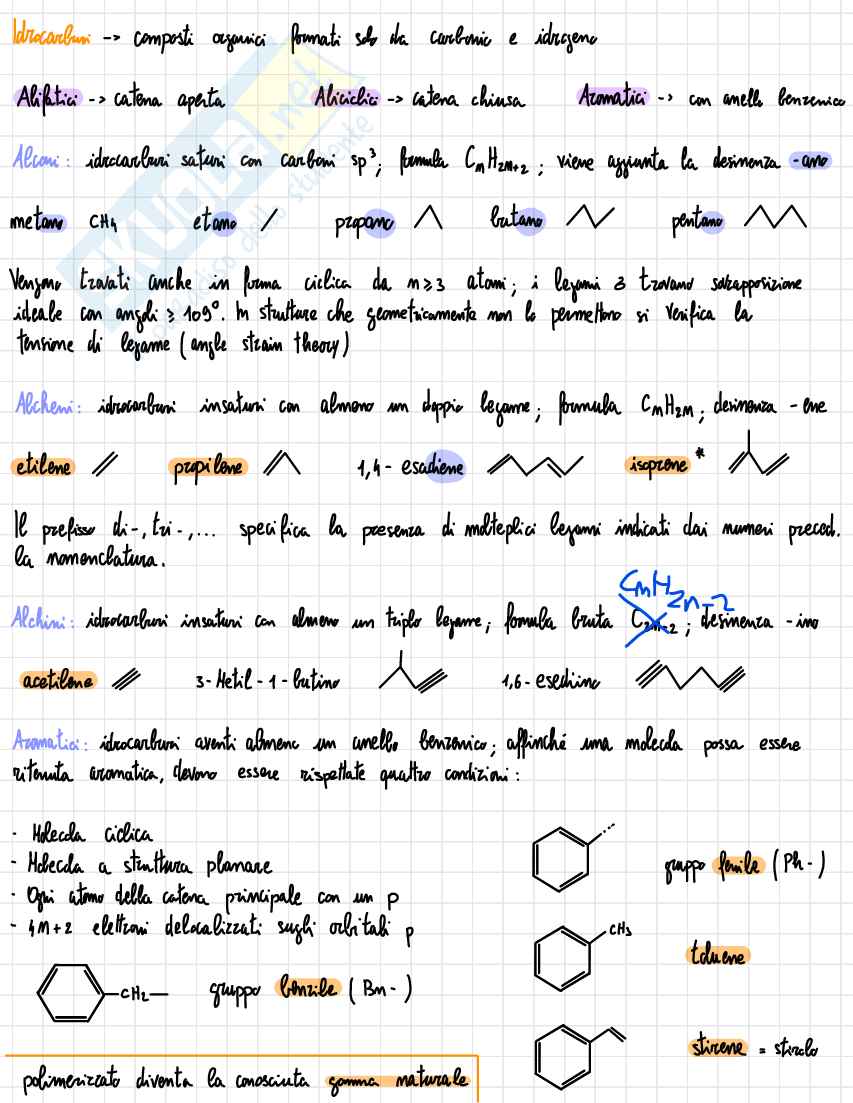 Idrocarburi -> composti organici formati solo da carbonio e idrogeno
Alifatici -> catena aperta Aliciclici -> catena chiusa Aromatici -> con anello benzenico
Alcani: idrocarburi saturi con carboni sp³; formula CnH2n+2; viene aggiunta la desinenza -ano
metano CH4 etano propano butano pentano
Vengono trovati anche in forma ciclica da n≥3 atomi; i legami σ trovano sovrapposizione
ideale con angoli ≥ 109°. In strutture che geometricamente non lo permettono si verifica la
tensione di legame (angle strain theory)
Alcheni: idrocarburi insaturi con almeno un doppio legame; formula CnH2n; desinenza -ene
etilene propilene 1,4-esadiene isoprene *
Il prefisso di-, tri-,... specifica la presenza di molteplici legami indicati dai numeri preced.
la nomenclatura.
CnH2n-2
Alchini: idrocarburi insaturi con almeno un triplo legame; formula bruta C2n-2; desinenza -ino
acetilene 3-Metil-1-butino 1,6-esediino
Aromatici: idrocarburi aventi almeno un anello benzenico; affinché una molecola possa essere
ritenuta aromatica, devono essere rispettate quattro condizioni:
- Molecola ciclica
- Molecola a struttura planare
- Ogni atomo della catena principale con un p
- 4n+2 elettroni delocalizzati sugli orbitali p
gruppo fenile (Ph-)
CH3
toluene
CH2
gruppo benzile (Bn-)
stirene = stirolo
polimerizzato diventa la conosciuta gomma naturale
SKUOLA.net
paradiso dello studente